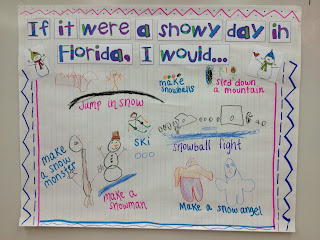 If it were a snowy day in
Florida, I would...
make
snowballs
sled down
a mountain
Jump in snow
ski
snowball fight
make
a snow
monster
make a
snowman
Make a snow angel